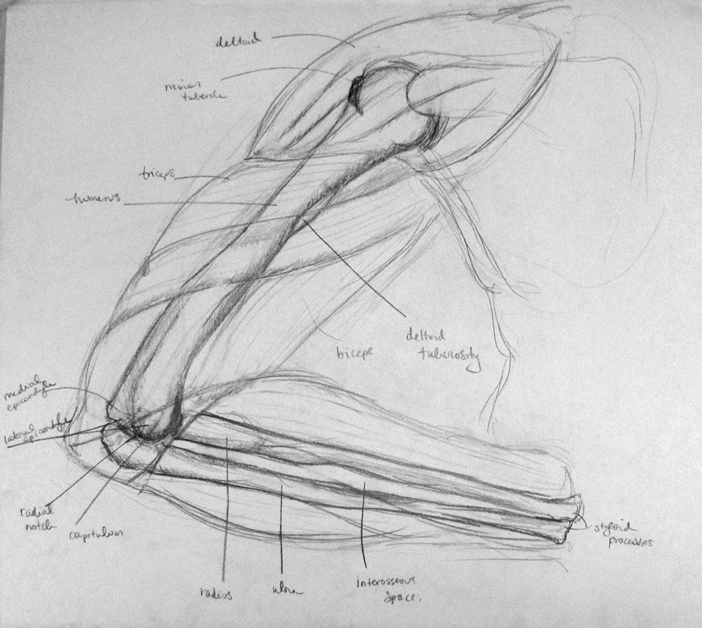 deltoid
minor
tubercle
triceps
humerus
deltoid
tuberosity
biceps
medial
epicondyle
lateral epicondyle
radial
notch
capitulum
radius
ulna
Interosseous
Space.
styloid
processes